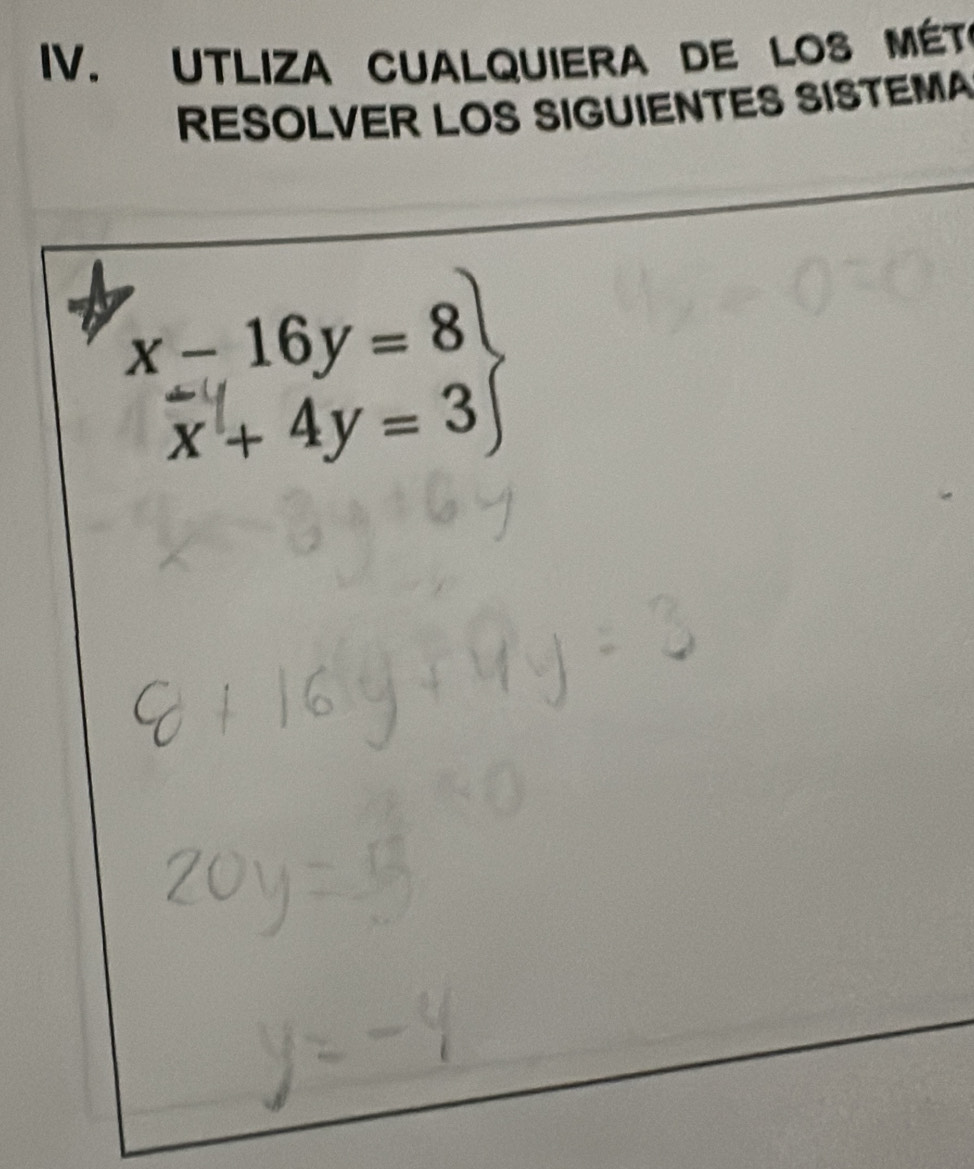 IV. UTLIZA CUALQUIERA DE LOS MÉT
RESOLVER LOS SIGUIENTES SISTEMA
x - 16y = 8
-4
x + 4y = 3
8 + 16y + 4y = 3
20y =
y = -4